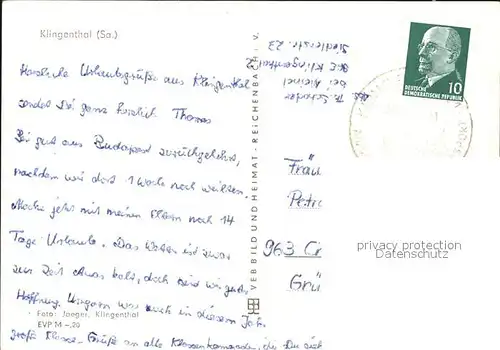 Klingenthal (Sa.)
Herzliche Urlaubsgrüße aus Klingenthal
sendet Dir ganz herzlich Thomas
Bin gut aus Budapest zurückgekehrt,
nachdem wir dort 1 Woche noch weilten.
Mache jetzt mit meinen Eltern noch 14
Tage Urlaub. Das Wetter ist zwar
zur Zeit etwas kalt, doch sind wir guter
Hoffnung. Ungarn war auch in diesem Jahr
große Klasse. Grüße an alle Klassenkameraden, die Du
Foto: Jaeger, Klingenthal
EVP M -,20
VEB BILD UND HEIMAT · REICHENBACH i. V.
Abs. Th.
bei Meinel
Klingenthal
Siedlerstr. 23
10
DEUTSCHE
DEMOKRATISCHE REPUBLIK
Fräu
Petra
963 Cr
Grü
privacy protection
Datenschutz